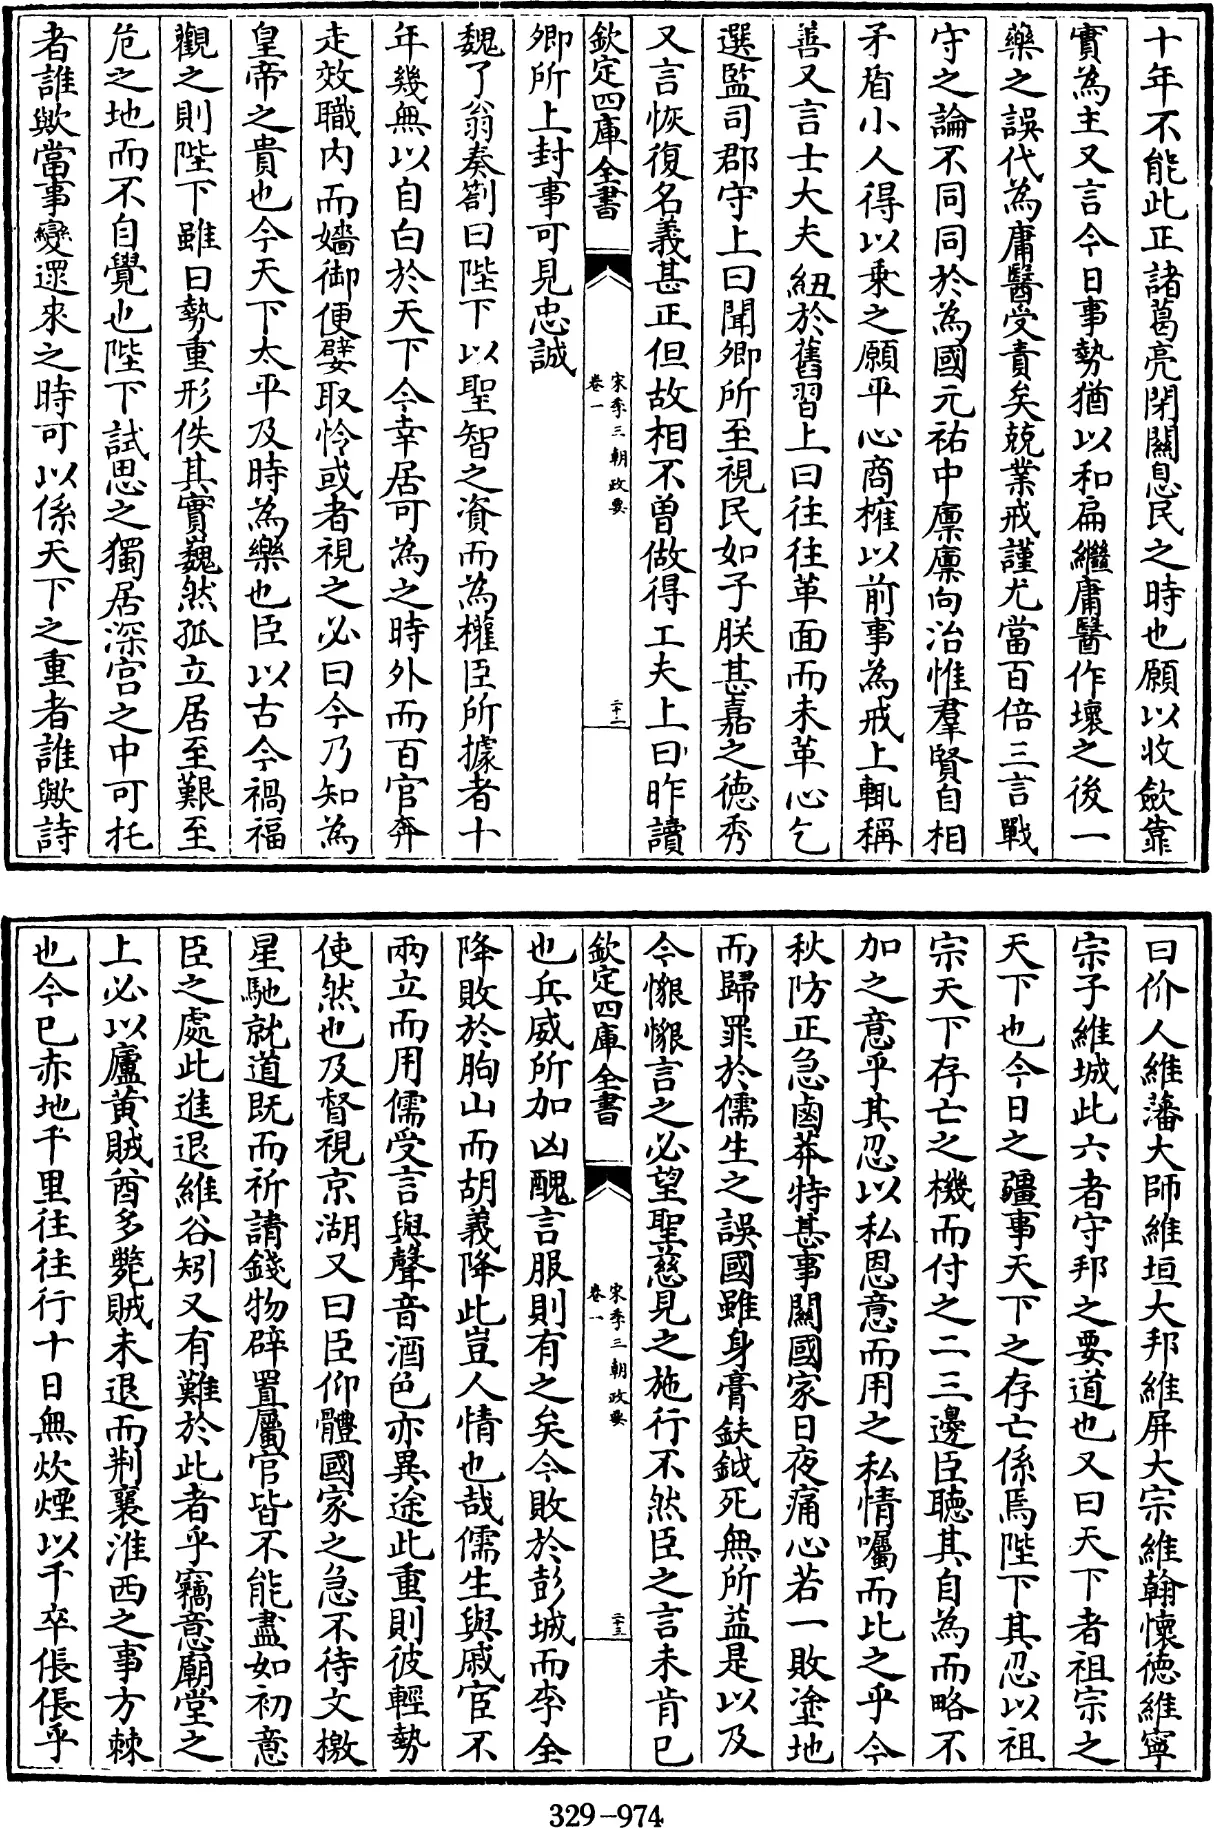 十年不能此正諸葛亮閉關息民之時也願以收歛靠
實為主又言今日事勢猶以和扁繼庸醫作壞之後一
藥之誤代為庸醫受責矣兢業戒謹尤當百倍三言戰
守之論不同同於為國元祐中廪廪向治惟羣賢自相
矛盾小人得以乗之願平心商榷以前事為戒上輒稱
善又言士大夫紐於舊習上曰往往革面而未革心乞
選監司郡守上曰聞卿所至視民如子朕甚嘉之徳秀
又言恢復名義甚正但故相不曽做得工夫上曰昨讀
欽定四庫全書
宋季三朝政要
卷一
二十二
卿所上封事可見忠誠
魏了翁奏劄曰陛下以聖智之資而為權臣所據者十
年幾無以自白於天下今幸居可為之時外而百官奔
走效職内而嬙御便嬖取怜或者視之必曰今乃知為
皇帝之貴也今天下太平及時為樂也臣以古今禍福
觀之則陛下雖曰勢重形佚其實巍然孤立居至艱至
危之地而不自覺也陛下試思之獨居深宫之中可托
者誰歟當事變遝來之時可以係天下之重者誰歟詩
曰价人維藩大師維垣大邦維屏大宗維翰懷徳維寧
宗子維城此六者守邦之要道也又曰天下者祖宗之
天下也今日之疆事天下之存亡係焉陛下其忍以祖
宗天下存亡之機而付之二三邊臣聽其自為而略不
加之意乎其忍以私恩意而用之私情囑而比之乎今
秋防正急鹵莽特甚事關國家日夜痛心若一敗塗地
而歸罪於儒生之誤國雖身膏鈇鉞死無所益是以及
今懇懇言之必望聖慈見之施行不然臣之言未肯已
欽定四庫全書
宋季三朝政要
卷一
二十三
也兵威所加凶醜言服則有之矣今敗於彭城而李全
降敗於朐山而胡義降此豈人情也哉儒生與戚宦不
兩立而用儒受言與聲音酒色亦異途此重則彼輕勢
使然也及督視京湖又曰臣仰體國家之急不待文檄
星馳就道既而祈請錢物辟置屬官皆不能盡如初意
臣之處此進退維谷矧又有難於此者乎竊意廟堂之
上必以廬黄賊酋多斃賊未退而荆襄淮西之事方棘
也今已赤地千里往往行十日無炊煙以千卒倀倀乎
329-974